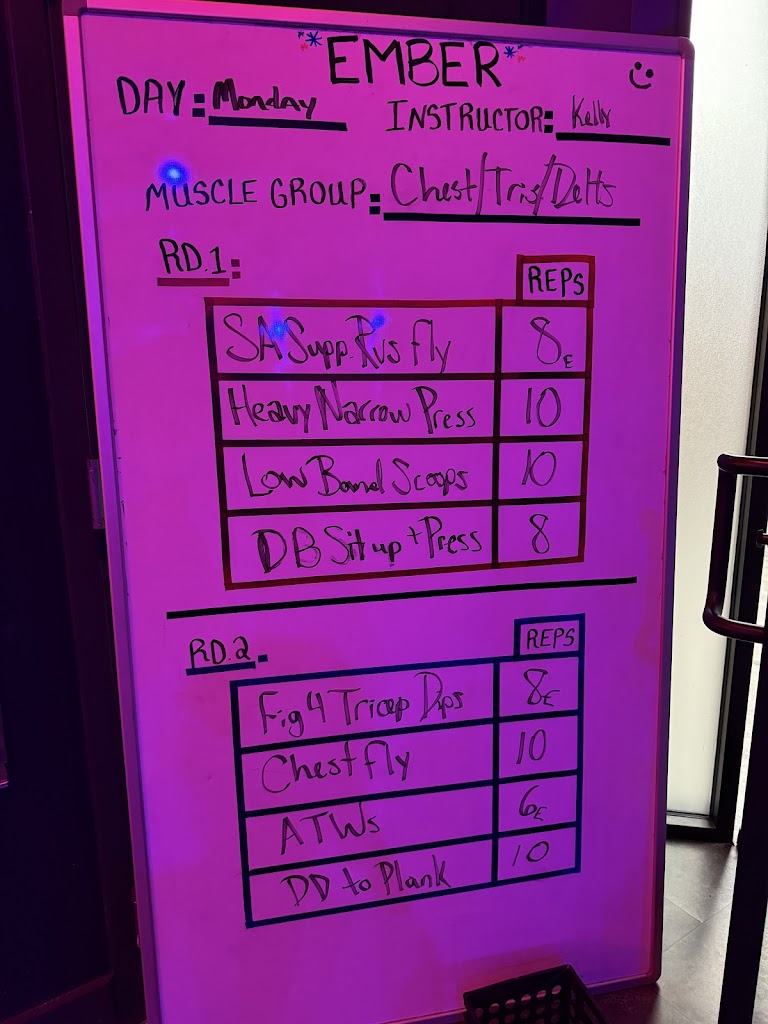 *EMBER*
DAY: Monday INSTRUCTOR: Kelly
MUSCLE GROUP: Chest/Tris/Delts
RD.1:
REPS
SA Supp. Rvs fly 8E
Heavy Narrow Press 10
Low Band Scoops 10
DB Situp + Press 8
RD.2.
REPS
Fig 4 Tricep Dips 8E
Chest fly 10
ATWs 6E
DD to Plank 10